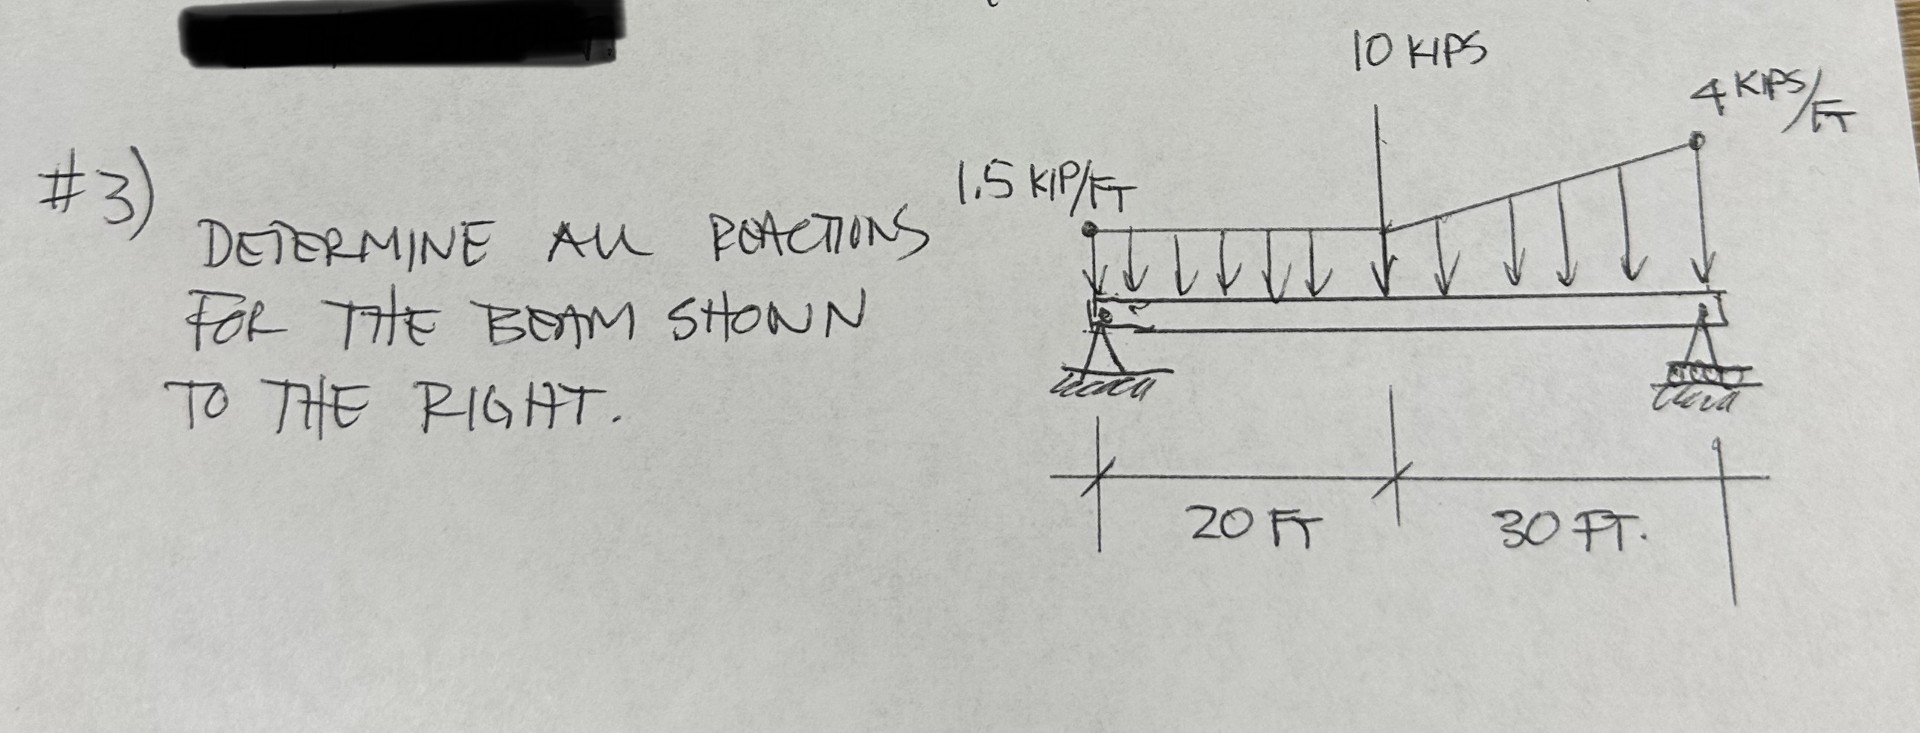 #3)
DETERMINE ALL REACTIONS
FOR THE BEAM SHOWN
TO THE RIGHT.
10 KIPS
4 KIPS/FT
1.5 KIP/FT
20 FT
30 FT.